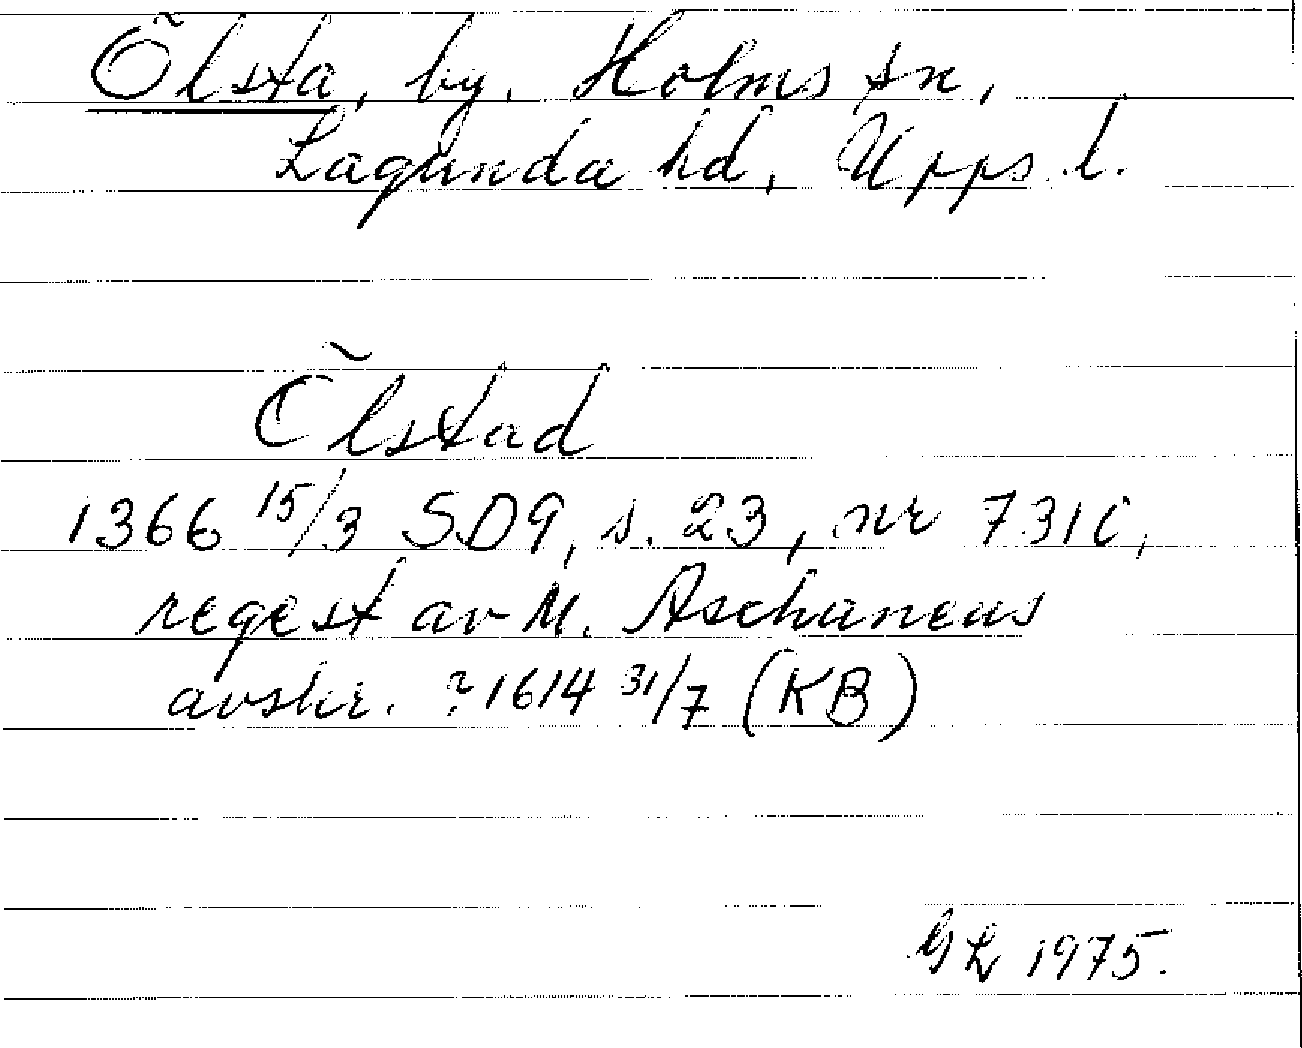 Õlsta, by. Holms sn,
Lagunda hd, Upps. l.
Õlstad
1366 15/3 SD9, s. 23, nr 7310,
regest av M. Aschaneus
avskr. ? 1614 31/7 (KB)
GL 1975.